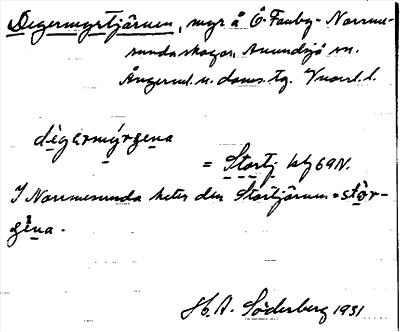 Degermyrtjärnen, myr å Ö. Fanby- Norrme-
sundaskogen, Anundsjö sn.
Ångerml. n. doms. tg. Vnorrl. l.
dègərmýrgena
= Stortj. kbl 69N.
I Norrmesunda heter den Stortjärnen = stòr-
gèna.
H. A. Söderberg 1931